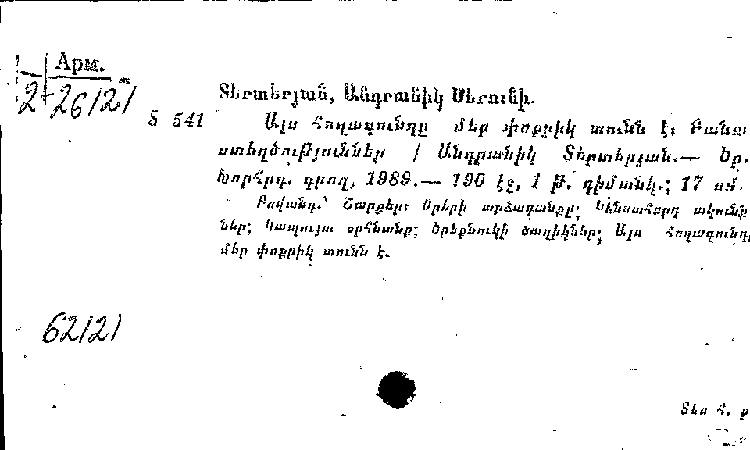 Арм.
2-26121
Տերտերյան, Անդրանիկ Սերունի.
Տ 541
Այս հողագունդը մեր փոքրիկ տունն է: Բանա-
ստեղծություններ / Անդրանիկ Տերտերյան.— Եր.
Խորհրդ. գրող, 1989.— 190 էջ, 1 թ. դիմանկ.; 17 սմ.
Բովանդ.՝ Շարքեր: Օրերի արձագանքը; Կենսահորդ ակունք-
ներ; Կապույտ օրհնանք; Երեքնուկի ծաղիկներ; Այս հողագունդը
մեր փոքրիկ տունն է.
62121
Տես հ. ք